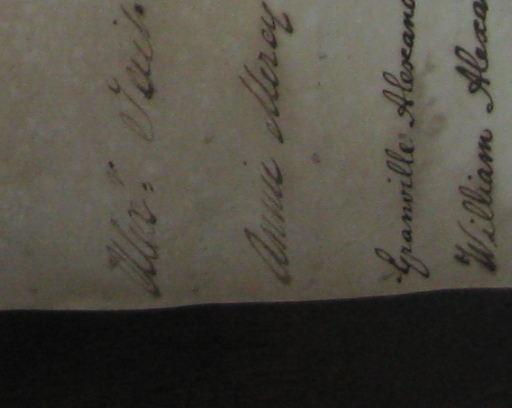 Annie Mercy
Granville Alexand
William Alexa